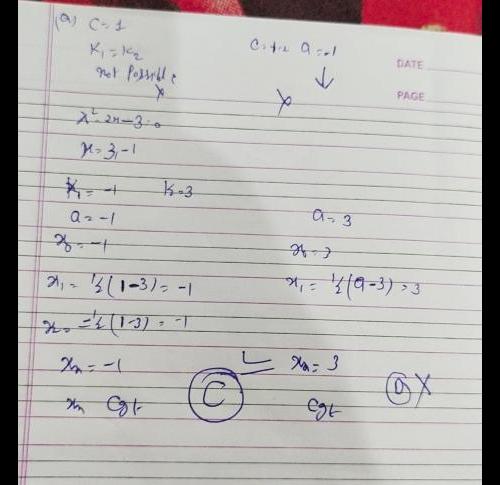 (a) C=1
K₁=K₂
not possible
C=1 a=-1
DATE
PAGE
x²-2x-3=0
x=3,-1
K₁=-1 K=3
a=-1 a=3
x₀=-1 x₀=3
x₁=½(1-3)=-1 x₁=½(9-3)=3
x₂=½(1-3)=-1
xₙ=-1 xₙ=3
xₙ Cgt. C Cgt a X